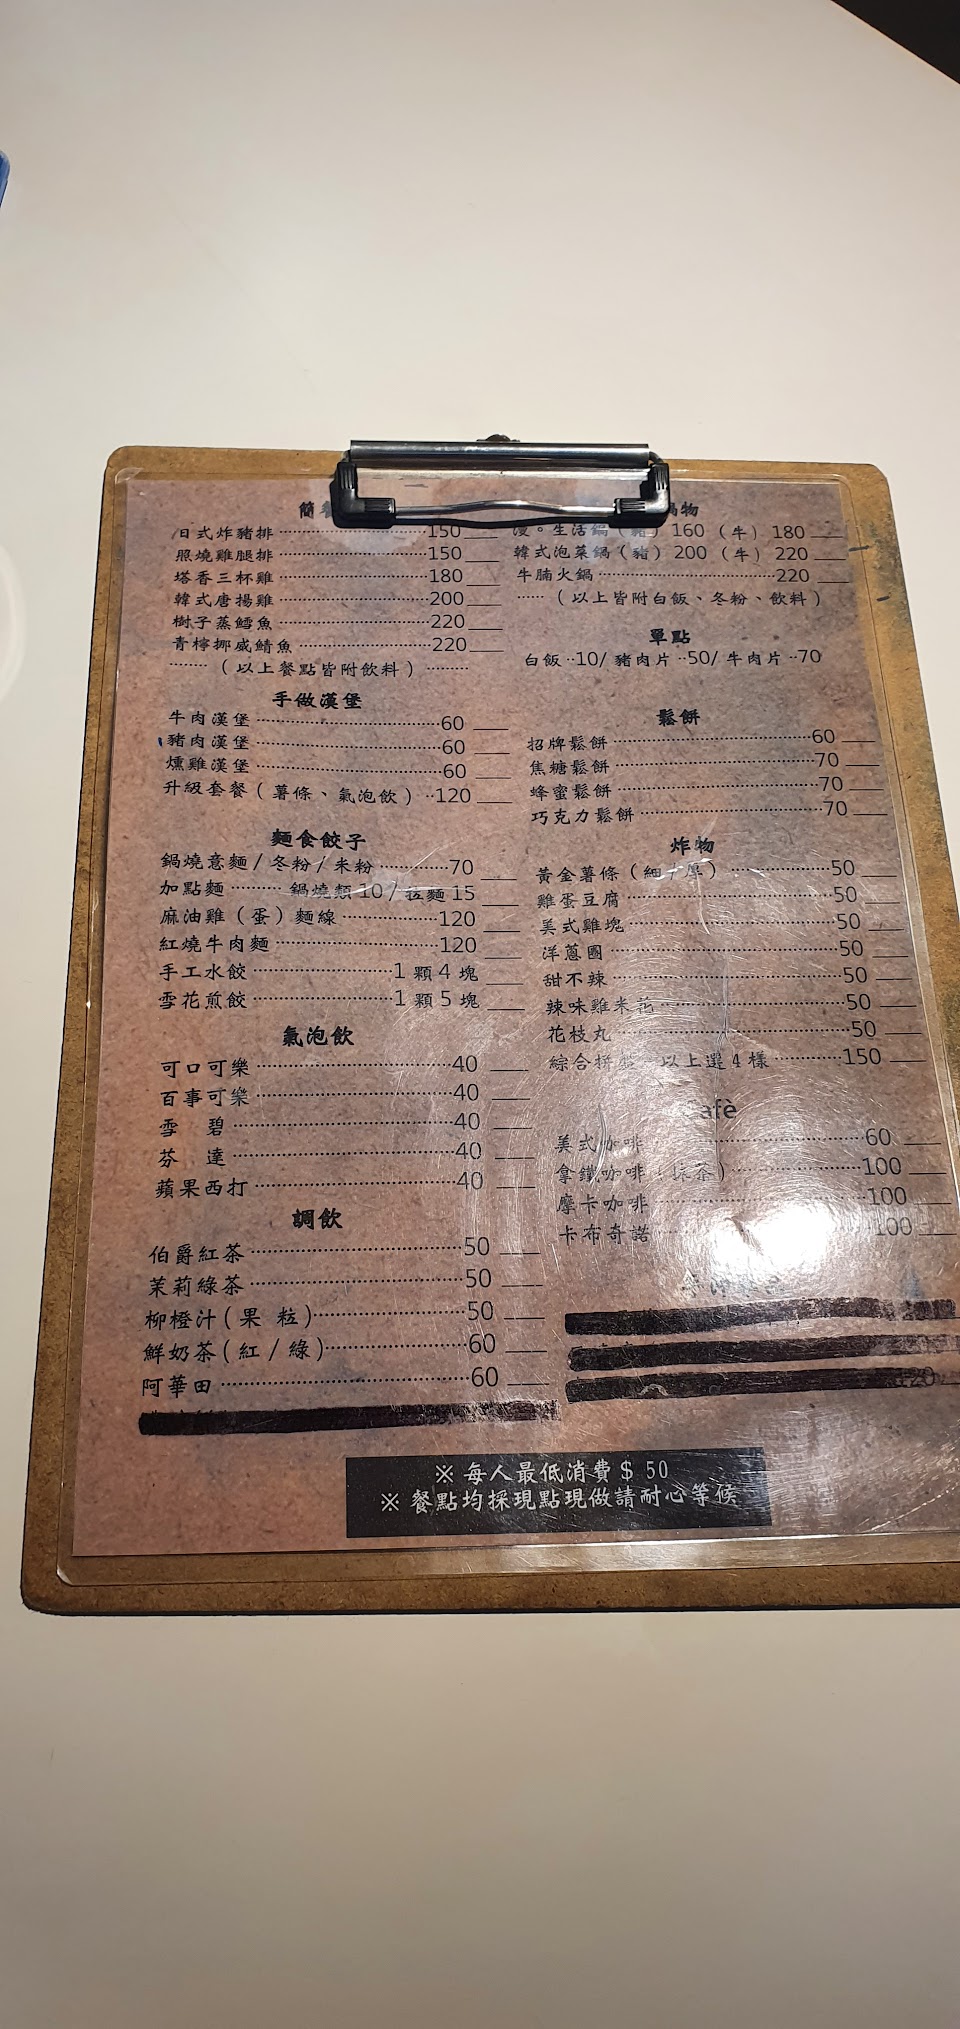 簡
日式炸豬排 150
照燒雞腿排 150
塔香三杯雞 180
韓式唐揚雞 200
樹子蒸鱈魚 220
青檸挪威鯖魚 220
（以上餐點皆附飲料）
手做漢堡
牛肉漢堡 60
豬肉漢堡 60
燻雞漢堡 60
升級套餐（薯條、氣泡飲） 120
麵食餃子
鍋燒意麵/冬粉/米粉 70
加點麵 鍋燒類10/拉麵15
麻油雞（蛋）麵線 120
紅燒牛肉麵 120
手工水餃 1顆4塊
雪花煎餃 1顆5塊
氣泡飲
可口可樂 40
百事可樂 40
雪 碧 40
芬 達 40
蘋果西打 40
調飲
伯爵紅茶 50
茉莉綠茶 50
柳橙汁(果 粒) 50
鮮奶茶(紅/綠) 60
阿華田 60
鍋物
漫。生活鍋（豬）160（牛）180
韓式泡菜鍋（豬）200（牛）220
牛腩火鍋 220
（以上皆附白飯、冬粉、飲料）
單點
白飯 10/豬肉片 50/牛肉片 70
鬆餅
招牌鬆餅 60
焦糖鬆餅 70
蜂蜜鬆餅 70
巧克力鬆餅 70
炸物
黃金薯條（細/厚） 50
雞蛋豆腐 50
美式雞塊 50
洋蔥圈 50
甜不辣 50
辣味雞米花 50
花枝丸 50
綜合拼 以上選4樣 150
afè
美式咖啡 60
拿鐵咖啡（抹茶） 100
摩卡咖啡 100
卡布奇諾 100
※ 每人最低消費$ 50
※ 餐點均採現點現做請耐心等候